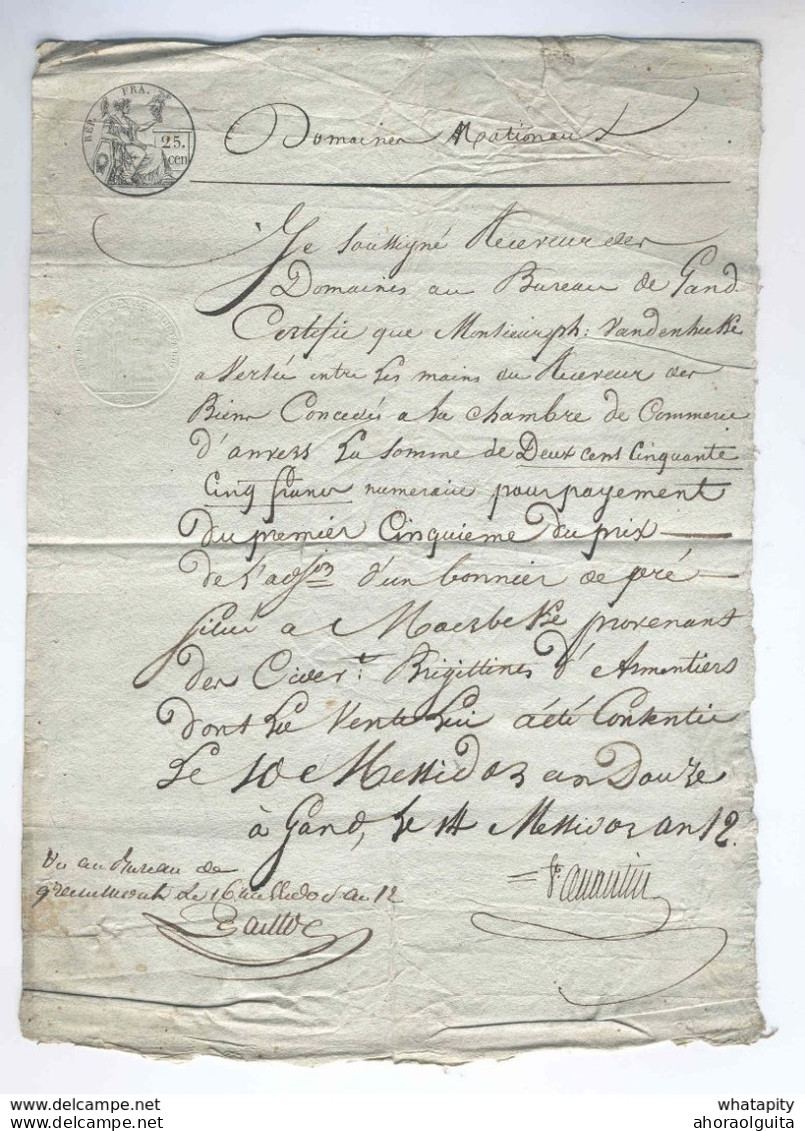 REP. FRA.
25.
cen
Domaines Nationaux
Je soussigné Receveur des
Domaines au Bureau de Gand
Certifie que Monsieur ph: Vandenhecke
a versée entre les mains du Receveur des
Biens Concedés a la chambre de Commerce
d'anvers la somme de Deux cent Cinquante
Cinq francs numeraire pour payement
Du premier Cinquieme du prix
De l'adjon d'un bonnier de pré
situé a Maerbeke provenant
des Brigittines d'Armentiers
dont la Vente lui a été Consentie
Le 10 Messidor an Douze
à Gand, le 14 Messidor an 12.
Vu au Bureau de
grammont le 16 messidor an 12
whatapity
ahoraolguita